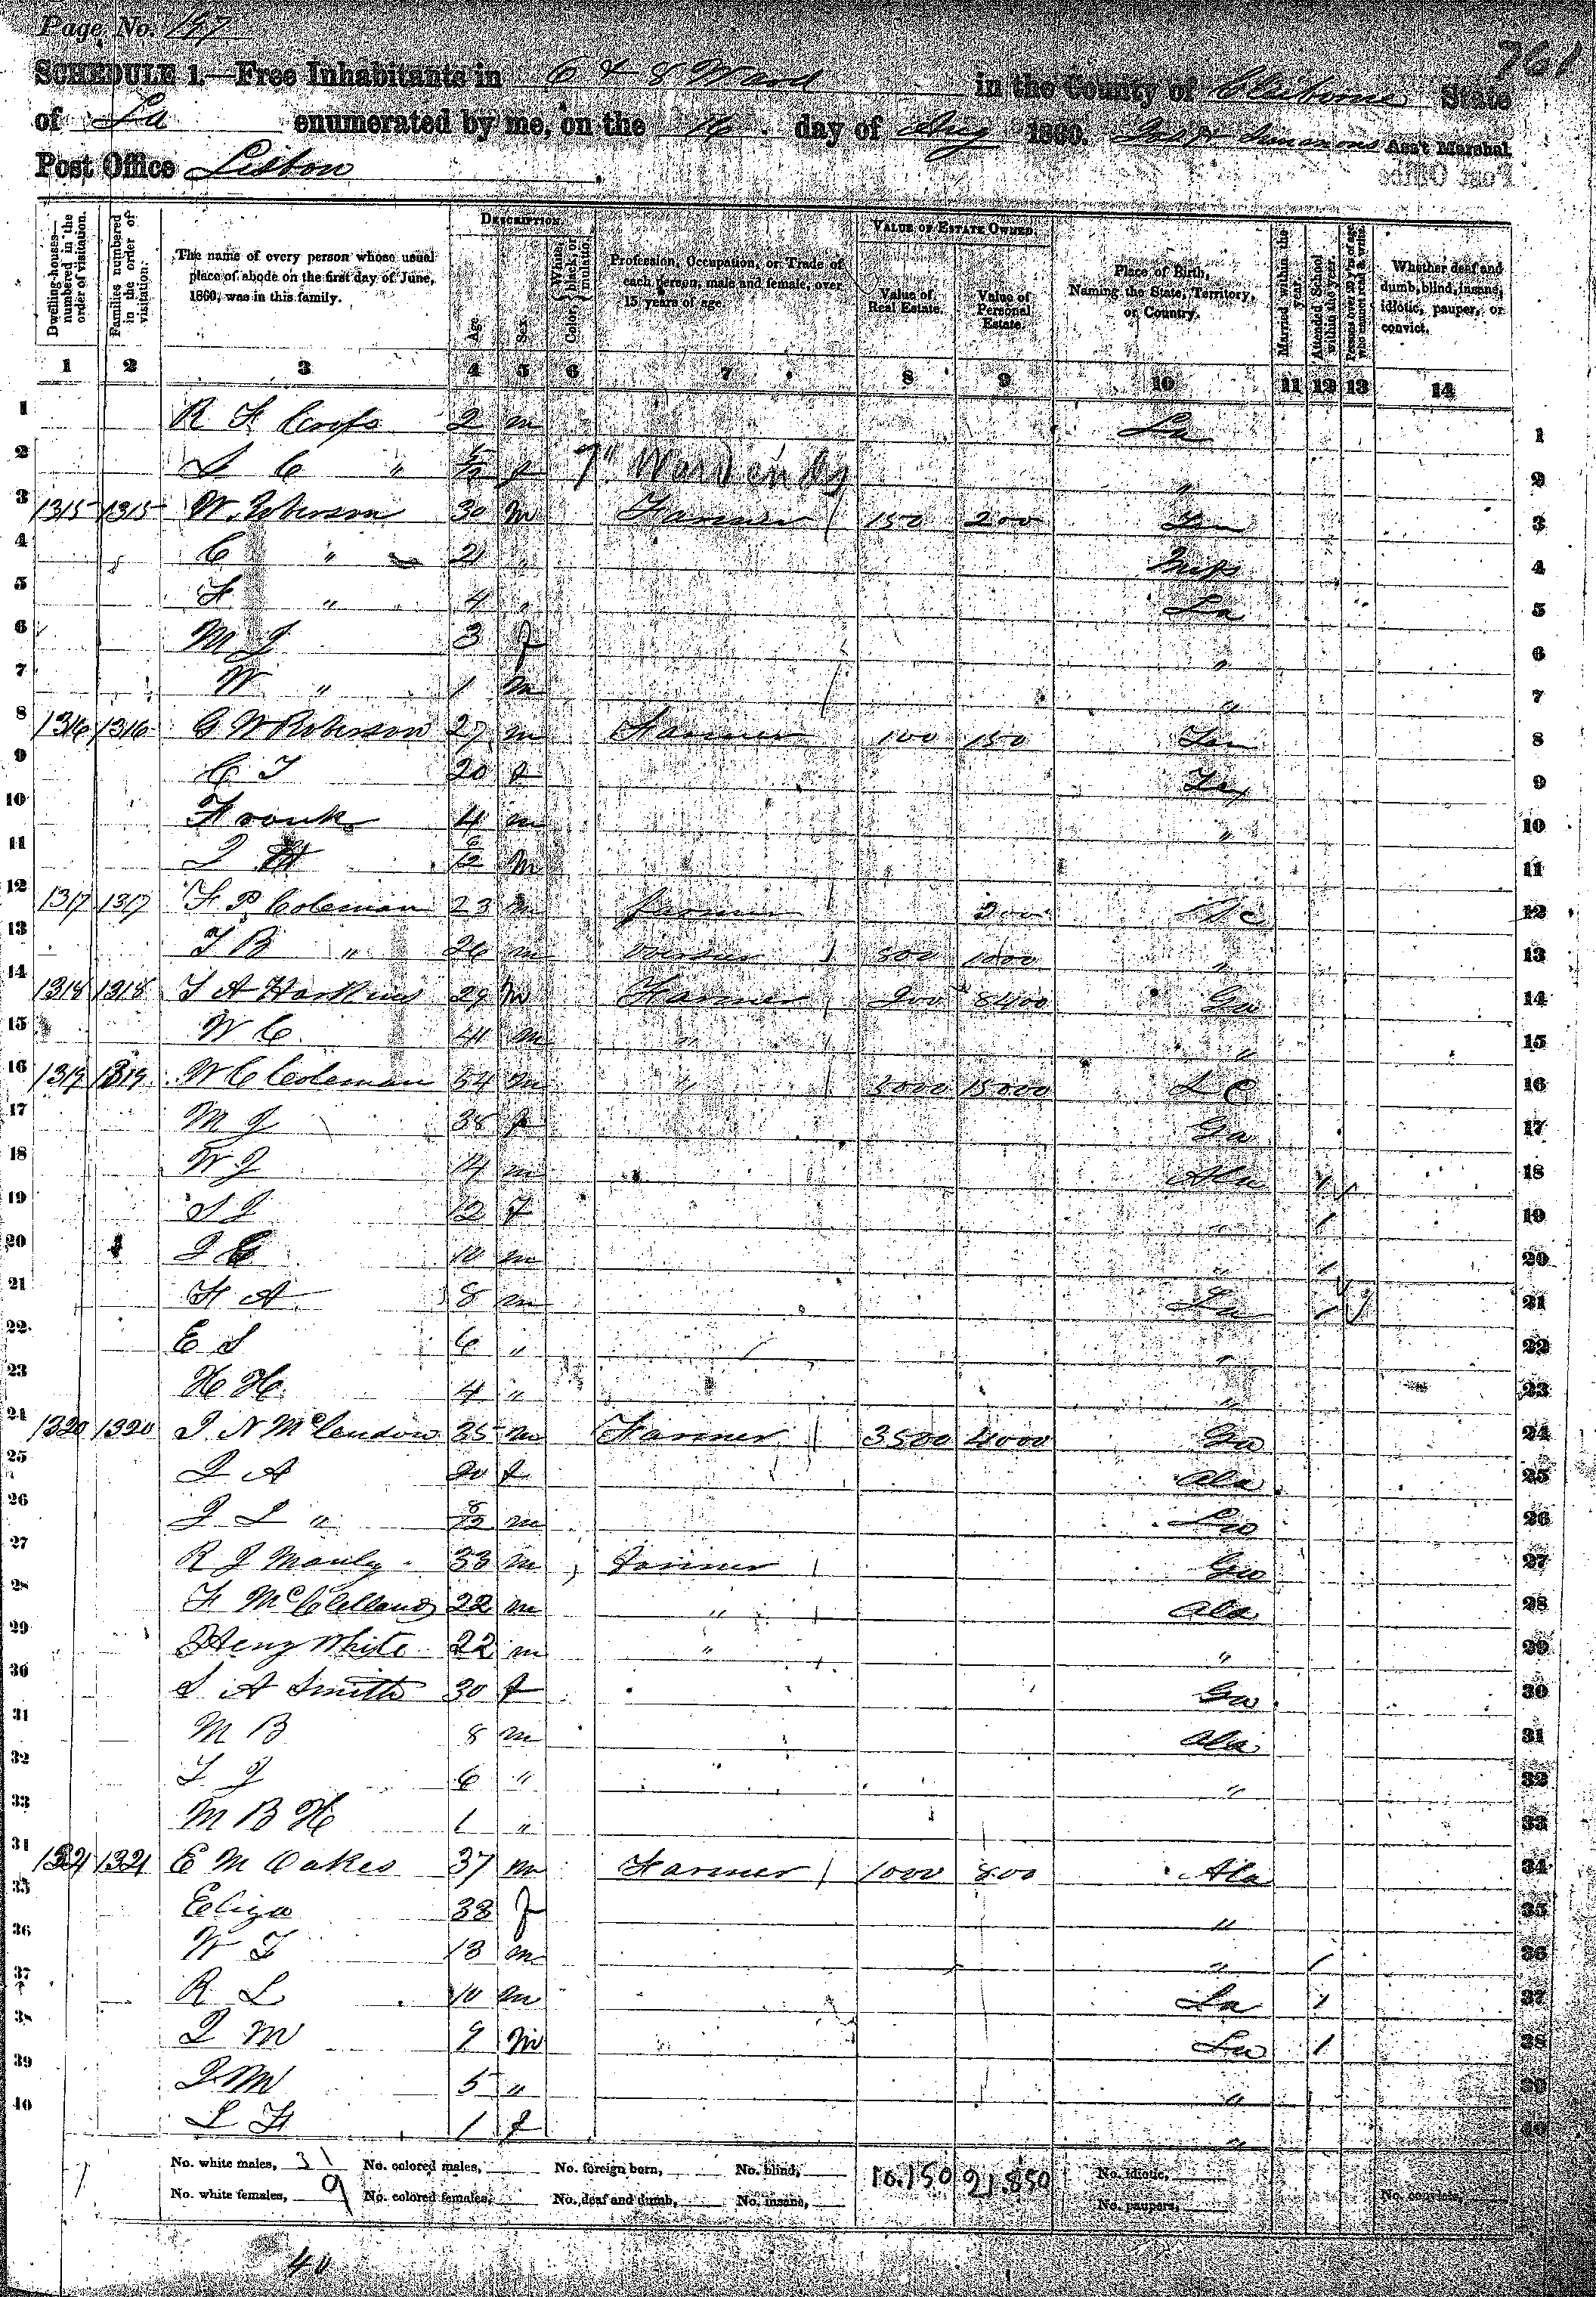 Page No. 197
761
SCHEDULE 1.—Free Inhabitants in 6 & 8 Ward in the County of Claiborne State
of La enumerated by me, on the 16 day of Aug 1860. Simmons Ass't Marshal
Post Office Lisbon
Dwelling-houses—numbered in the order of visitation.
Families numbered in the order of visitation.
The name of every person whose usual place of abode on the first day of June, 1860, was in this family.
DESCRIPTION.
Age.
Sex.
Color, White, black, or mulatto.
Profession, Occupation, or Trade of each person, male and female, over 15 years of age.
VALUE OF ESTATE OWNED.
Value of Real Estate.
Value of Personal Estate.
Place of Birth, Naming the State, Territory, or Country.
Married within the year.
Attended School within the year.
Persons over 20 y'rs of age who cannot read & write.
Whether deaf and dumb, blind, insane, idiotic, pauper, or convict.
1 2 3 4 5 6 7 8 9 10 11 12 13 14
1 R F 2 m La 1
2 S C " 5/12 f 7" Ward ends " 2
3 1315 1315 W. Roberson 30 m Farmer 1 150 200 3
4 C " 21 " Miss 4
5 F " 4 " La 5
6 M J 3 f " 6
7 W " 1 m " 7
8 1316 1316 G W Roberson 27 m Farmer 100 150 8
9 C T 20 f 9
10 Frank 4 m " 10
11 6/12 m 11
12 1317 1317 F P Coleman 23 m farmer 200 12
13 T B " 26 m 1 800 1000 " 13
14 1318 1318 T A Harkins 29 m Farmer 1 200 8400 Ga 14
15 W C 41 m " " 15
16 1319 1319 W C Coleman 54 m " 1 5000 15000 S C 16
17 M J 38 f Ga 17
18 W J 14 m Ala 1 18
19 S J 12 f " 1 19
20 10 m " 1 20
21 F A 8 m La 1 21
22 E S 6 " " 22
23 H H 4 " " 23
24 1320 1320 J N McClendon 35 m Farmer 1 3500 4000 Ga 24
25 J A 20 f Ala 25
26 J L " 8/12 m La 26
27 R J Manly 33 m farmer 1 Ga 27
28 F McClelland 22 m " 1 Ala 28
29 Henry White 22 m " 1 " 29
30 S A Smith 30 f Ga 30
31 M B 8 m Ala 31
32 T J 6 " " 32
33 M B H 1 " 33
34 1321 1321 E M Oakes 37 m Farmer 1 1000 800 Ala 34
35 Eliza 38 f " 35
36 W T 13 m " 1 36
37 R L 10 m La 1 37
38 J M 9 m La 1 38
39 J M 5 " " 39
40 L F 1 f " 40
No. white males, 31 No. colored males, No. foreign born, No. blind, 10.150 21.850 No. idiotic,
No. white females, 9 No. colored females, No. deaf and dumb, No. insane, No. paupers, No. convicts,
40